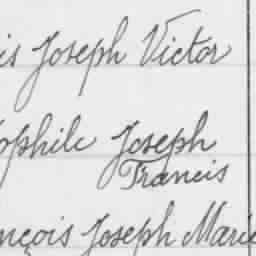 is Joseph Victor
ophile Joseph
Francis
nçois Joseph Marie